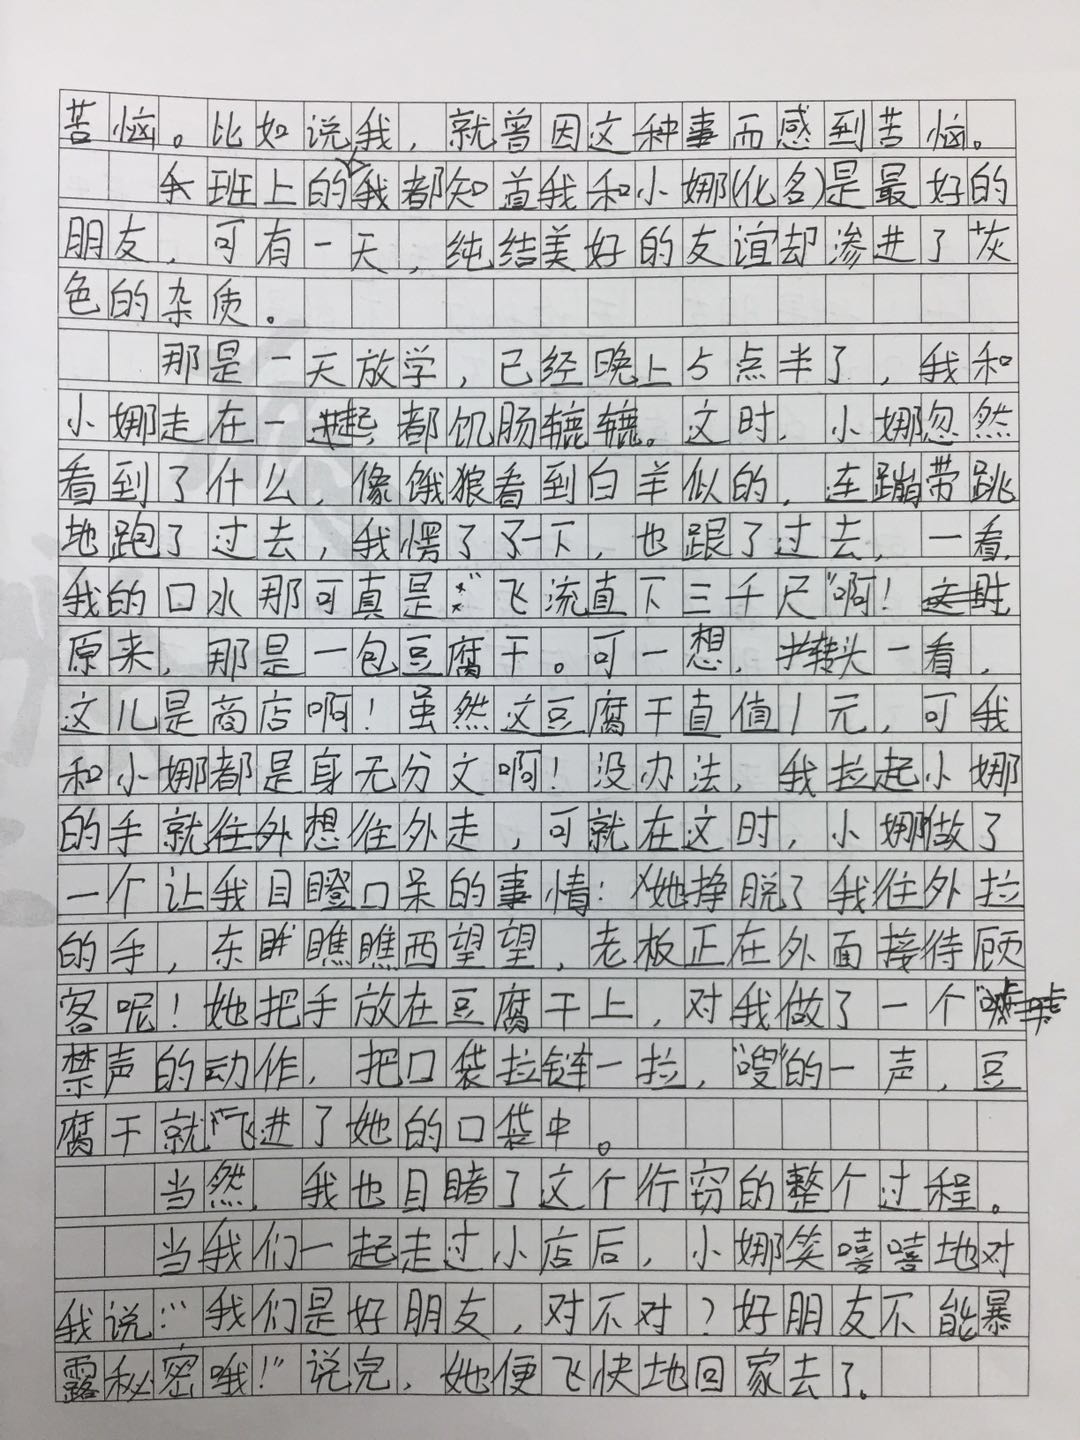 苦恼。比如说我，就曾因这种事而感到苦恼。
我班上的我都知道我和小娜(化名)是最好的
朋友，可有一天，纯结美好的友谊却渗进了灰
色的杂质。
那是一天放学，已经晚上5点半了，我和
小娜走在一起，都饥肠辘辘。这时，小娜忽然
看到了什么，像饿狼看到白羊似的，连蹦带跳
地跑了过去，我愣了了一下，也跟了过去，一看，
我的口水那可真是“飞流直下三千尺”啊！
原来，那是一包豆腐干。可一想，转头一看，
这儿是商店啊！虽然这豆腐干直值1元，可我
和小娜都是身无分文啊！没办法，我拉起小娜
的手就想往外走，可就在这时，小娜做了
一个让我目瞪口呆的事情：她挣脱了我往外拉
的手，东瞧瞧西望望，老板正在外面接待顾
客呢！她把手放在豆腐干上，对我做了一个
禁声的动作，把口袋拉链一拉，“嗖”的一声，豆
腐干就“飞”进了她的口袋中。
当然，我也目睹了这个行窃的整个过程。
当我们一起走过小店后，小娜笑嘻嘻地对
我说：“我们是好朋友，对不对？好朋友不能暴
露秘密哦！”说完，她便飞快地回家去了。